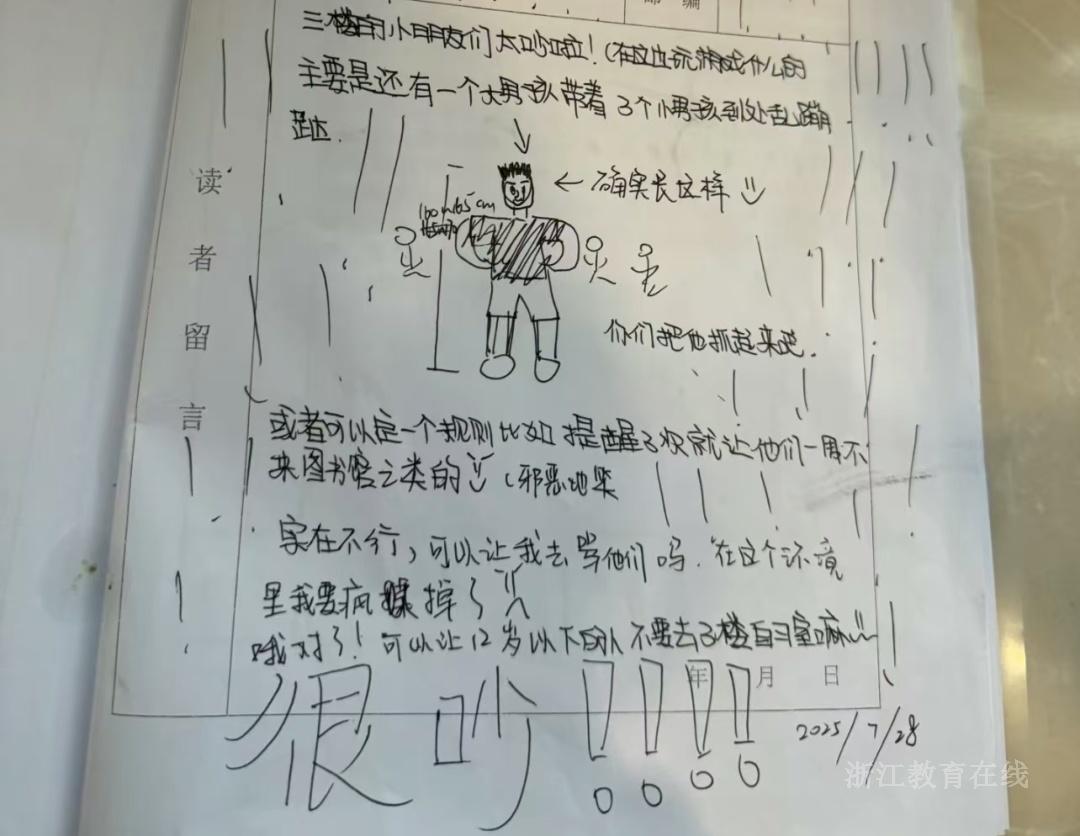 三楼的小朋友们太吵啦！（在这边玩游戏什么的
主要是还有一个大男孩带着3个小男孩到处乱蹦
跶.
↓
← 确实长这样
160~165cm
你们把他抓起来吧.
读者留言
或者可以定一个规则比如提醒3次就让他们一周不
来图书馆之类的（邪恶地笑
实在不行，可以让我去当他们吗.在这个环境
里我要疯掉了
哦对了！可以让12岁以下的人不要去3楼自习室嘛
年 月 日
很吵！！！！
2025/7/28
浙江教育在线